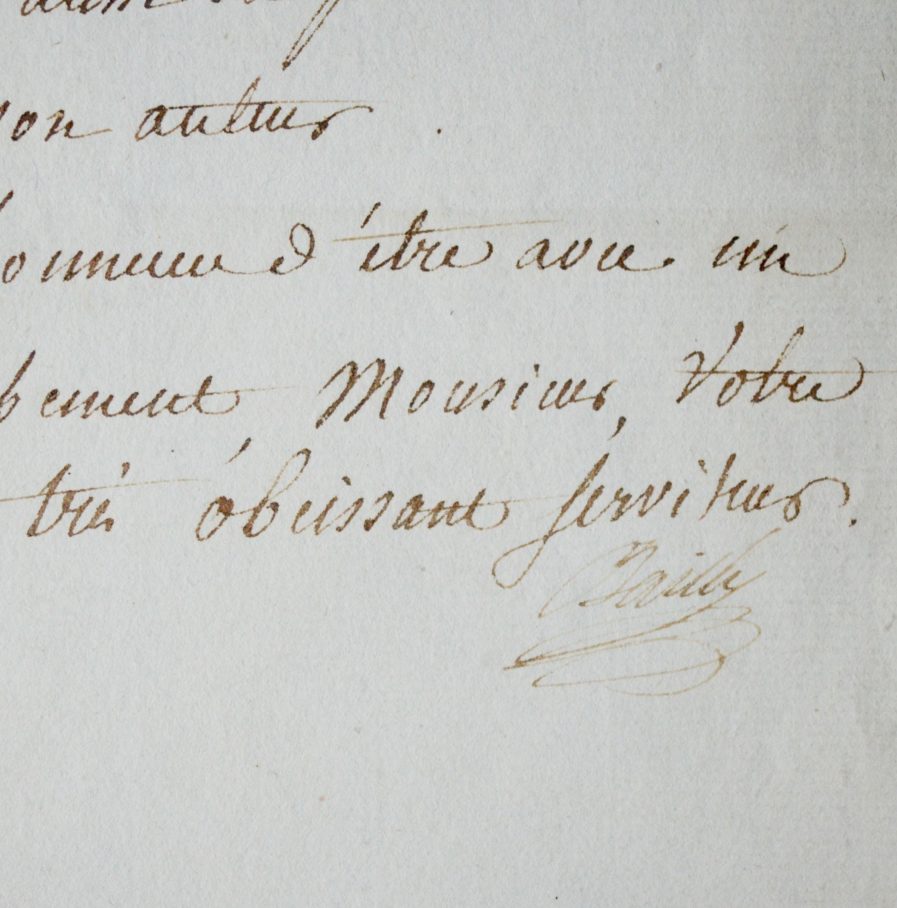 son auteur.
honneur d'être avec un
bement Monsieur, Votre
très obéissant serviteur.
Bailly